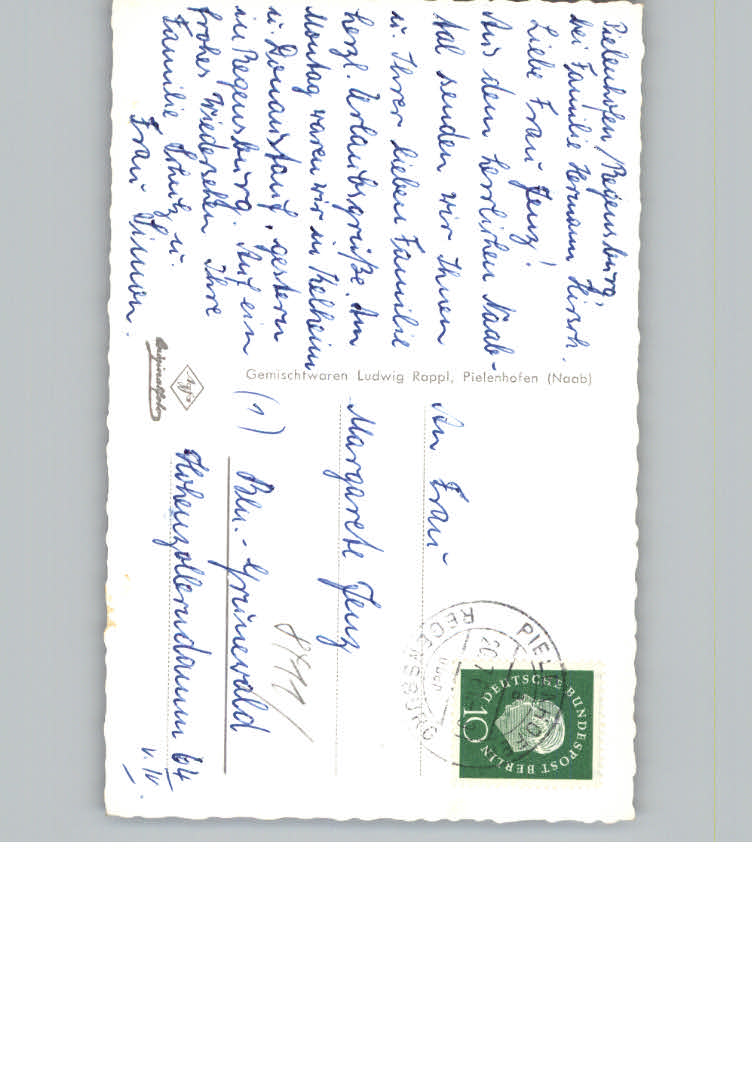 Pielenhofen/Regensburg
bei Familie Hermann Hirsch.
Liebe Frau Jenz!
Aus dem herrlichen Naab-
tal senden wir Ihnen
u. Ihrer lieben Familie
herzl. Urlaubsgrüße. Am
Montag waren wir in Kelheim
u. Donaustauf, gestern
in Regensburg. Auf ein
frohes Wiedersehen Ihre
Familie u.
Frau Simon.
Agfa
Originalfoto
Gemischtwaren Ludwig Rappl, Pielenhofen (Naab)
An Frau
Margarete Jenz
(1) Bln.-Grunewald
Hohenzollerndamm 64
v. IV.
8911
PIELENHOFEN
REGENSBURG
DEUTSCHE BUNDESPOST BERLIN
10